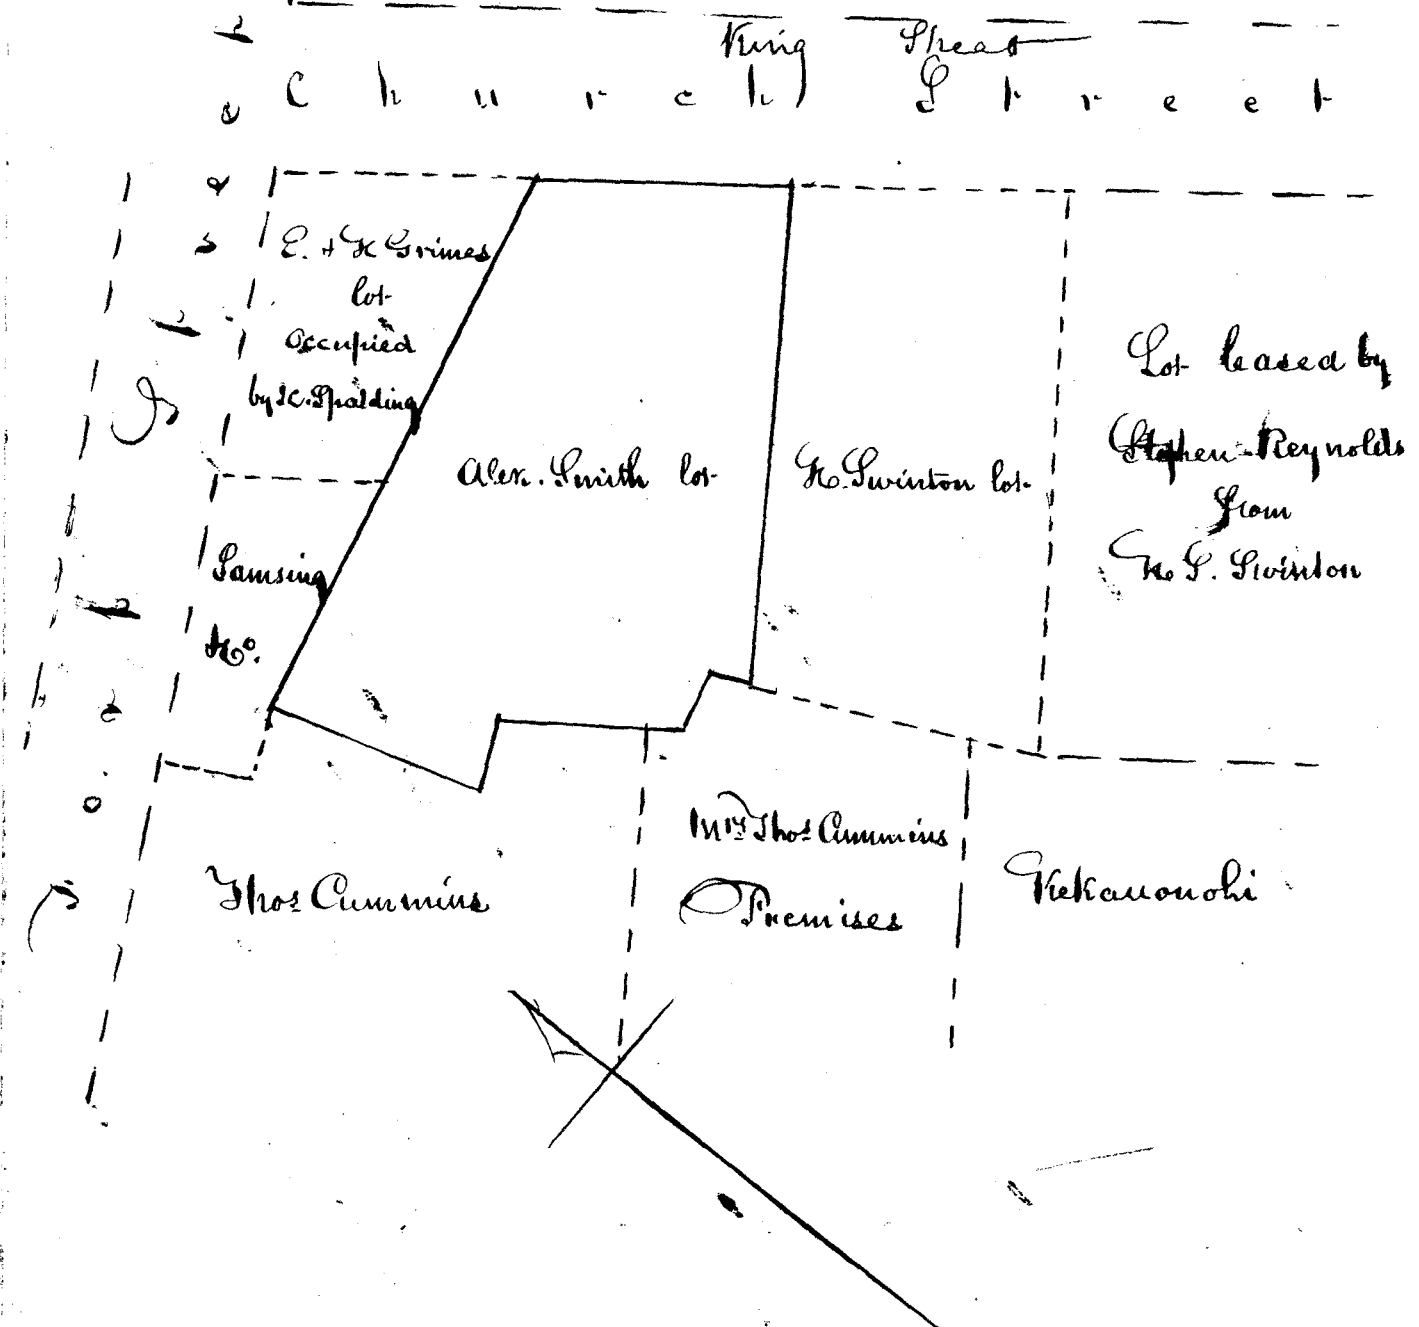 King Street
Church Street
Fort Street
E. & H Grimes
lot
Occupied
by J. Spalding
Alex. Smith lot
H. Swinton lot
Lot leased by
Stephen Reynolds
from
H. S. Swinton
Samsing
& Co.
Mrs Thos Cummins
Premises
Thos Cummins
Kekauonohi